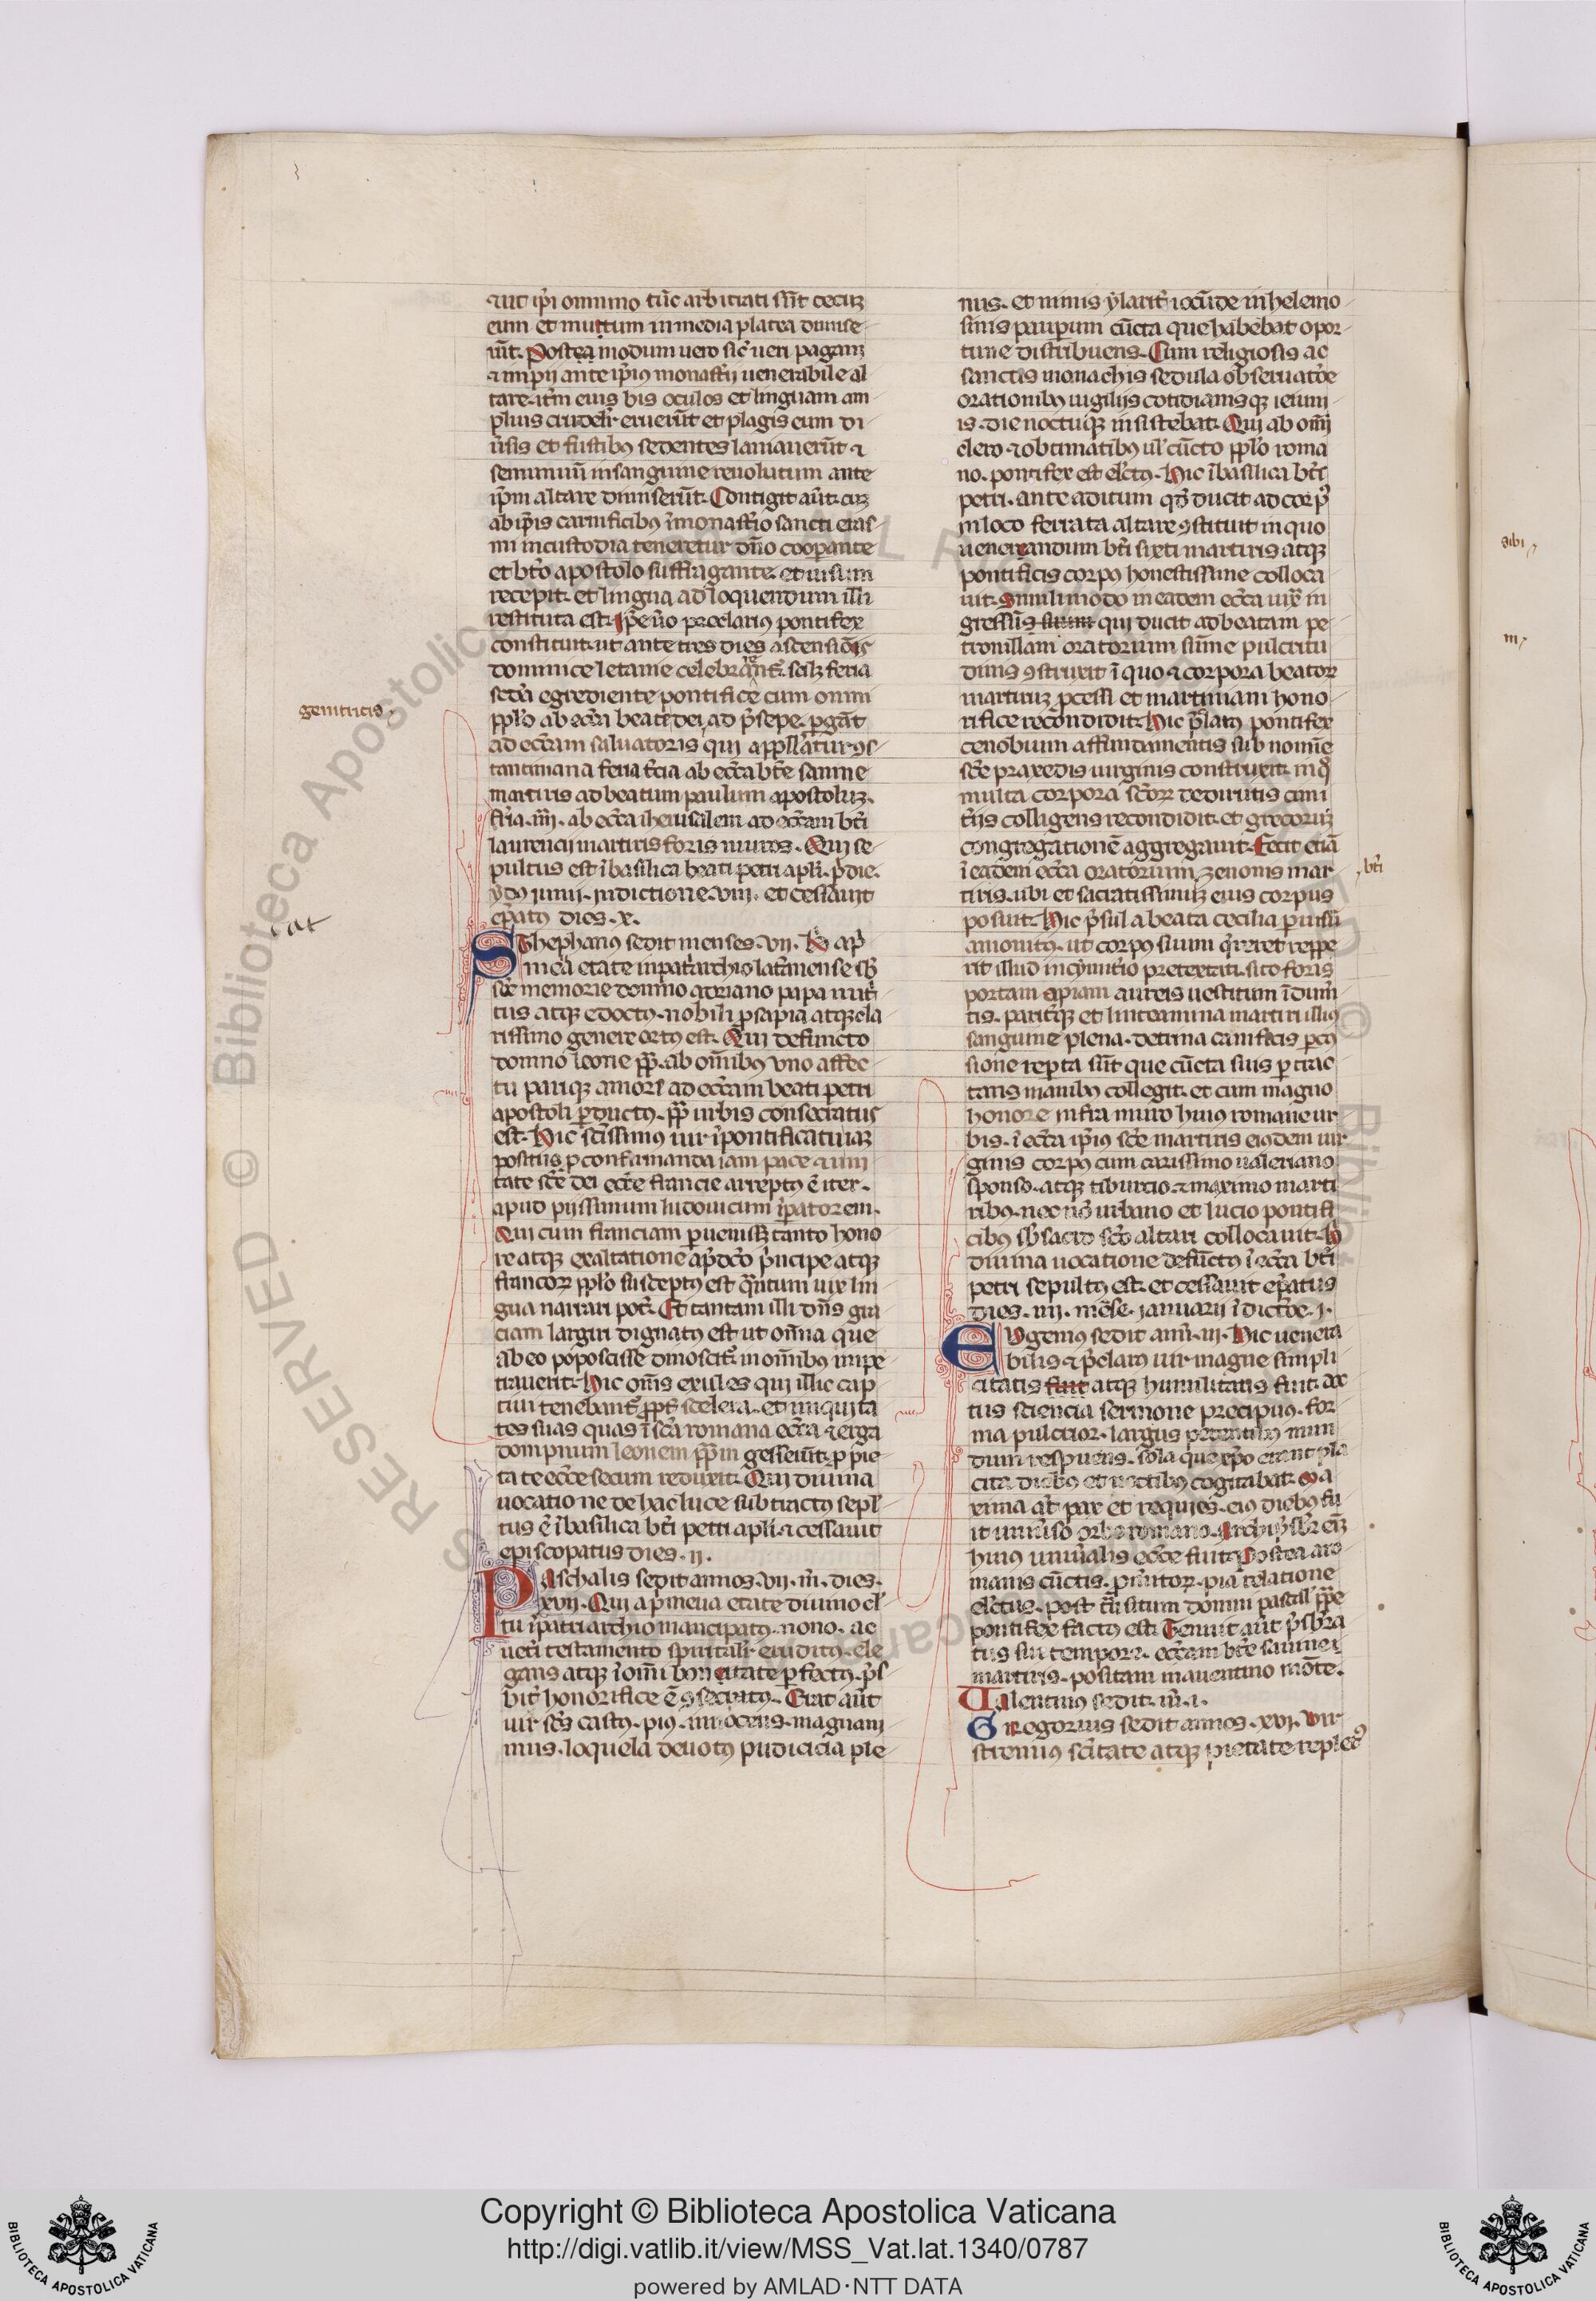 aut ip̄i omnino tūc arbitrati sūt cecuꝫ
eum et mutum in media platea dimise
rūt. Postea modum uero sic̄ ueri pagani
⁊ impii ante ip̄ius monast̄ii uenerabile al
tare. it̄m eius bis oculos et linguam am
plius crudelit̄ eruerūt et plagis eum di
ūsis et fustibꝰ sedentes laniauerūt ⁊
semiuiuū in sanguine reuolutum ante
ip̄m altare dimiserūt. Contigit aūt. cuꝫ
ab ip̄is carnificibꝰ ī monast̄io sancti eras
mi in custodia teneretur dn̄o coop̄ante
et bt̄o apostolo suffragante. et uisum
recepit. et lingua ad loquendum illi
restituta est. Ip̄e ūo preclarꝰ pontifex
constituit. ut ante tres dies ascensiōis
dominice letanie celebrant̄. scilꝫ feria
scd̄a egrediente pontifice cum omni
ppl̄o ab ecc̄a beate dei, ad p̄sepe. pergāt
genitricis,
ad ecc̄am saluatoris qui appllatur ꝯs
tantiniana feria t̄cia ab ecc̄a bt̄e sanne
martiris ad beatum paulum apostoluꝫ.
fr̄ia .iiij. ab ecc̄a iherusalem ad ecc̄am bt̄i
laurencij martiris foris muros. Qui se
pultus est ī basilica beati petri apli. p̄die.
ydꝰ iunii. indictione .viii. et cessauit
ep̄atꝰ dies .x.
Sthephanus sedit menses .vii. Hic a p̄
mea etate in pat̄archio lat̄nense sb̄
sc̄e memorie domno adriano papa nut̄
tus atqꝫ edoctꝰ. nobili p̄sapia atqꝫ cla
rissimo genere ortꝰ est. Qui defuncto
domno leone pp̄. ab om̄ibus uno affec
tu pariqꝫ amore ad ecc̄am beati petri
apostoli p̄ductꝰ. pp̄ urbis consecratus
est. Hic sc̄issimus uir ī pontificatu iaꝫ
positus p̄ confirmanda iam pace ⁊ uni
tate sc̄e dei ecc̄e francie arreptꝰ ē iter.
apud pijssimum ludouicum īpatorem.
Qui cum franciam p̄uenissꝫ tanto hono
re atqꝫ exaltatione a p̄dc̄o p̄ncipe atqꝫ
francoꝝ ppl̄o susceptꝰ est q̄ntum uix lin
gua narrari pot̄. Et tantam illi dn̄s gra
ciam largiri dignatꝰ est ut om̄ia que
ab eo poposcisse dinoscit̄. in om̄ibus impe
trauerit. Hic om̄s exules qui illic cap
tiui tenebant̄ ppt̄ scelera. et iniquita
tes suas quas ī sc̄a romana ecc̄a ⁊ erga
dompnum leonem pp̄m gesserūt. p̄ pie
tate ecc̄e secum reduxit. Qui diuina
uocatione de hac luce subtractꝰ sepl̄
tus ē ī basilica bt̄i petri apli. ⁊ cessauit
episcopatus dies .ii.
Paschalis sedit annos .vii. m̄. dies.
xvii. Qui a p̄meua etate diuino cl̄
tu ī patriarchio mancipatꝰ. nono. ac
uet̄i testamento spiritalit̄ eruditꝰ. ele
gans atqꝫ ī om̄i bonitate p̄fectꝰ. p̄s
bit̄ honorifice ē ꝯsecratꝰ. Erat aūt
uir sc̄s castꝰ. pius. innocens. magnani
mus. loquela deuotꝰ pudicicia ple
nus. et nimis ylarit̄ iocūde in helemo
sinis paup̄um cūcta que habebat opor
tune distribuens. Cum religiosis ac
sanctis monachis sedula obseruatōe
orationibꝰ uigilijs cotidianisqꝫ ieiuni
is. die noctuqꝫ insistebat. Qui ab om̄i
clero ⁊ obtimatibꝰ ul̄ cūcto ppl̄o roma
no. pontifex est elc̄tꝰ. Hic ī basilica bt̄i
petri. ante aditum qd̄ ducit ad corpꝰ
in loco ferrata altare ꝯstituit in quo
uenerandum bt̄i sixti martiris atqꝫ
pontificis corpꝰ honestissime colloca
uit. Simili modo in eadem ecc̄a iux̄ in
gressūs qui ducit ad beatam pe
tronillam oratorium sūme pulcritu
dinis ꝯstruxit ī quo ⁊ corpora beatoꝝ
martiruꝫ p̄cessi et martiniani hono
rifice recondidit. Hic p̄latꝰ pontifex
cenobium a fundamentis sub nomīe
sc̄e praxedis uirginis construxit. in q̄
multa corpora sc̄oꝝ de dirutis cimi
t̄iis colligens recondidit. et grecoruꝫ
congregationē aggregauit. Fecit etiā
ī eadem ecc̄a oratorium, zenonis mar
bt̄i
tiris. ubi et sacratissimuꝫ eius corpus
posuit. Hic p̄sul a beata cecilia p̄ uisū
amonitꝰ. ut corpꝰ suum q̄reret reppe
rit illud in cymit̄io pretextati. sito foris
portam apiam aureis uestitum īdum̄
tis. parit̄qꝫ et linteamina martiri illius
sanguine plena. de tima carnificis p̄cꝰ
sione rep̄ta sūt que cūcta suis p̄trac
tans manibꝰ collegit. et cum magno
honore infra muro huius romane ur
bis. ī ecc̄a ip̄ius sc̄e martiris eiusdem uir
ginis corpꝰ cum carissimo ualeriano
sponso. atqꝫ tiburcio ⁊ maximo marti
ribꝰ. nec nō urbano et lucio pontifi
cibus sb̄ sacro sc̄o altari collocauit. H
diuina uocatione defūctꝰ ī ecc̄a bt̄i
petri sepultꝰ est. et cessauit ep̄atus
dies .iiij. mēse. ianuarii ī dictōe .j.
Eugenius sedit ann̄ .iij. Hic uenera
bilis ⁊ p̄clarus uir magne simpli
citatis fuit atqꝫ humilitatis fuit. doc
tus sciencia sermone precipuus. for
ma pulcrior. largus petentibꝰ mun
dum respuens. sola que xp̄o erant pla
cita diebꝰ et noctibꝰ cogitabat. Ma
xima aūt pax et requies. eius diebꝰ fu
it uniūso orbe romano. Archip̄sbr̄ eiꝫ
huius uniūalis ecc̄e fuit. Postea a ro
manis cūctis. p̄mitoꝝ. pia relatione
elc̄tus. post t̄nsitum domni pascal̄ pp̄e
pontifex factꝰ est. Tenuit aūt p̄sbr̄a
tus sui tempore. ecc̄am bt̄e sauinei
martiris. positam in auentino mōte.
Ualentinus sedit. m̄. i.
Gregorius sedit annos .xvj. uir
strenuus sc̄itate atqꝫ pietate repletꝰ
sibi
m
Copyright © Biblioteca Apostolica Vaticana
http://digi.vatlib.it/view/MSS_Vat.lat.1340/0787
powered by AMLAD·NTT DATA
BIBLIOTECA APOSTOLICA VATICANA
BIBLIOTECA APOSTOLICA VATICANA